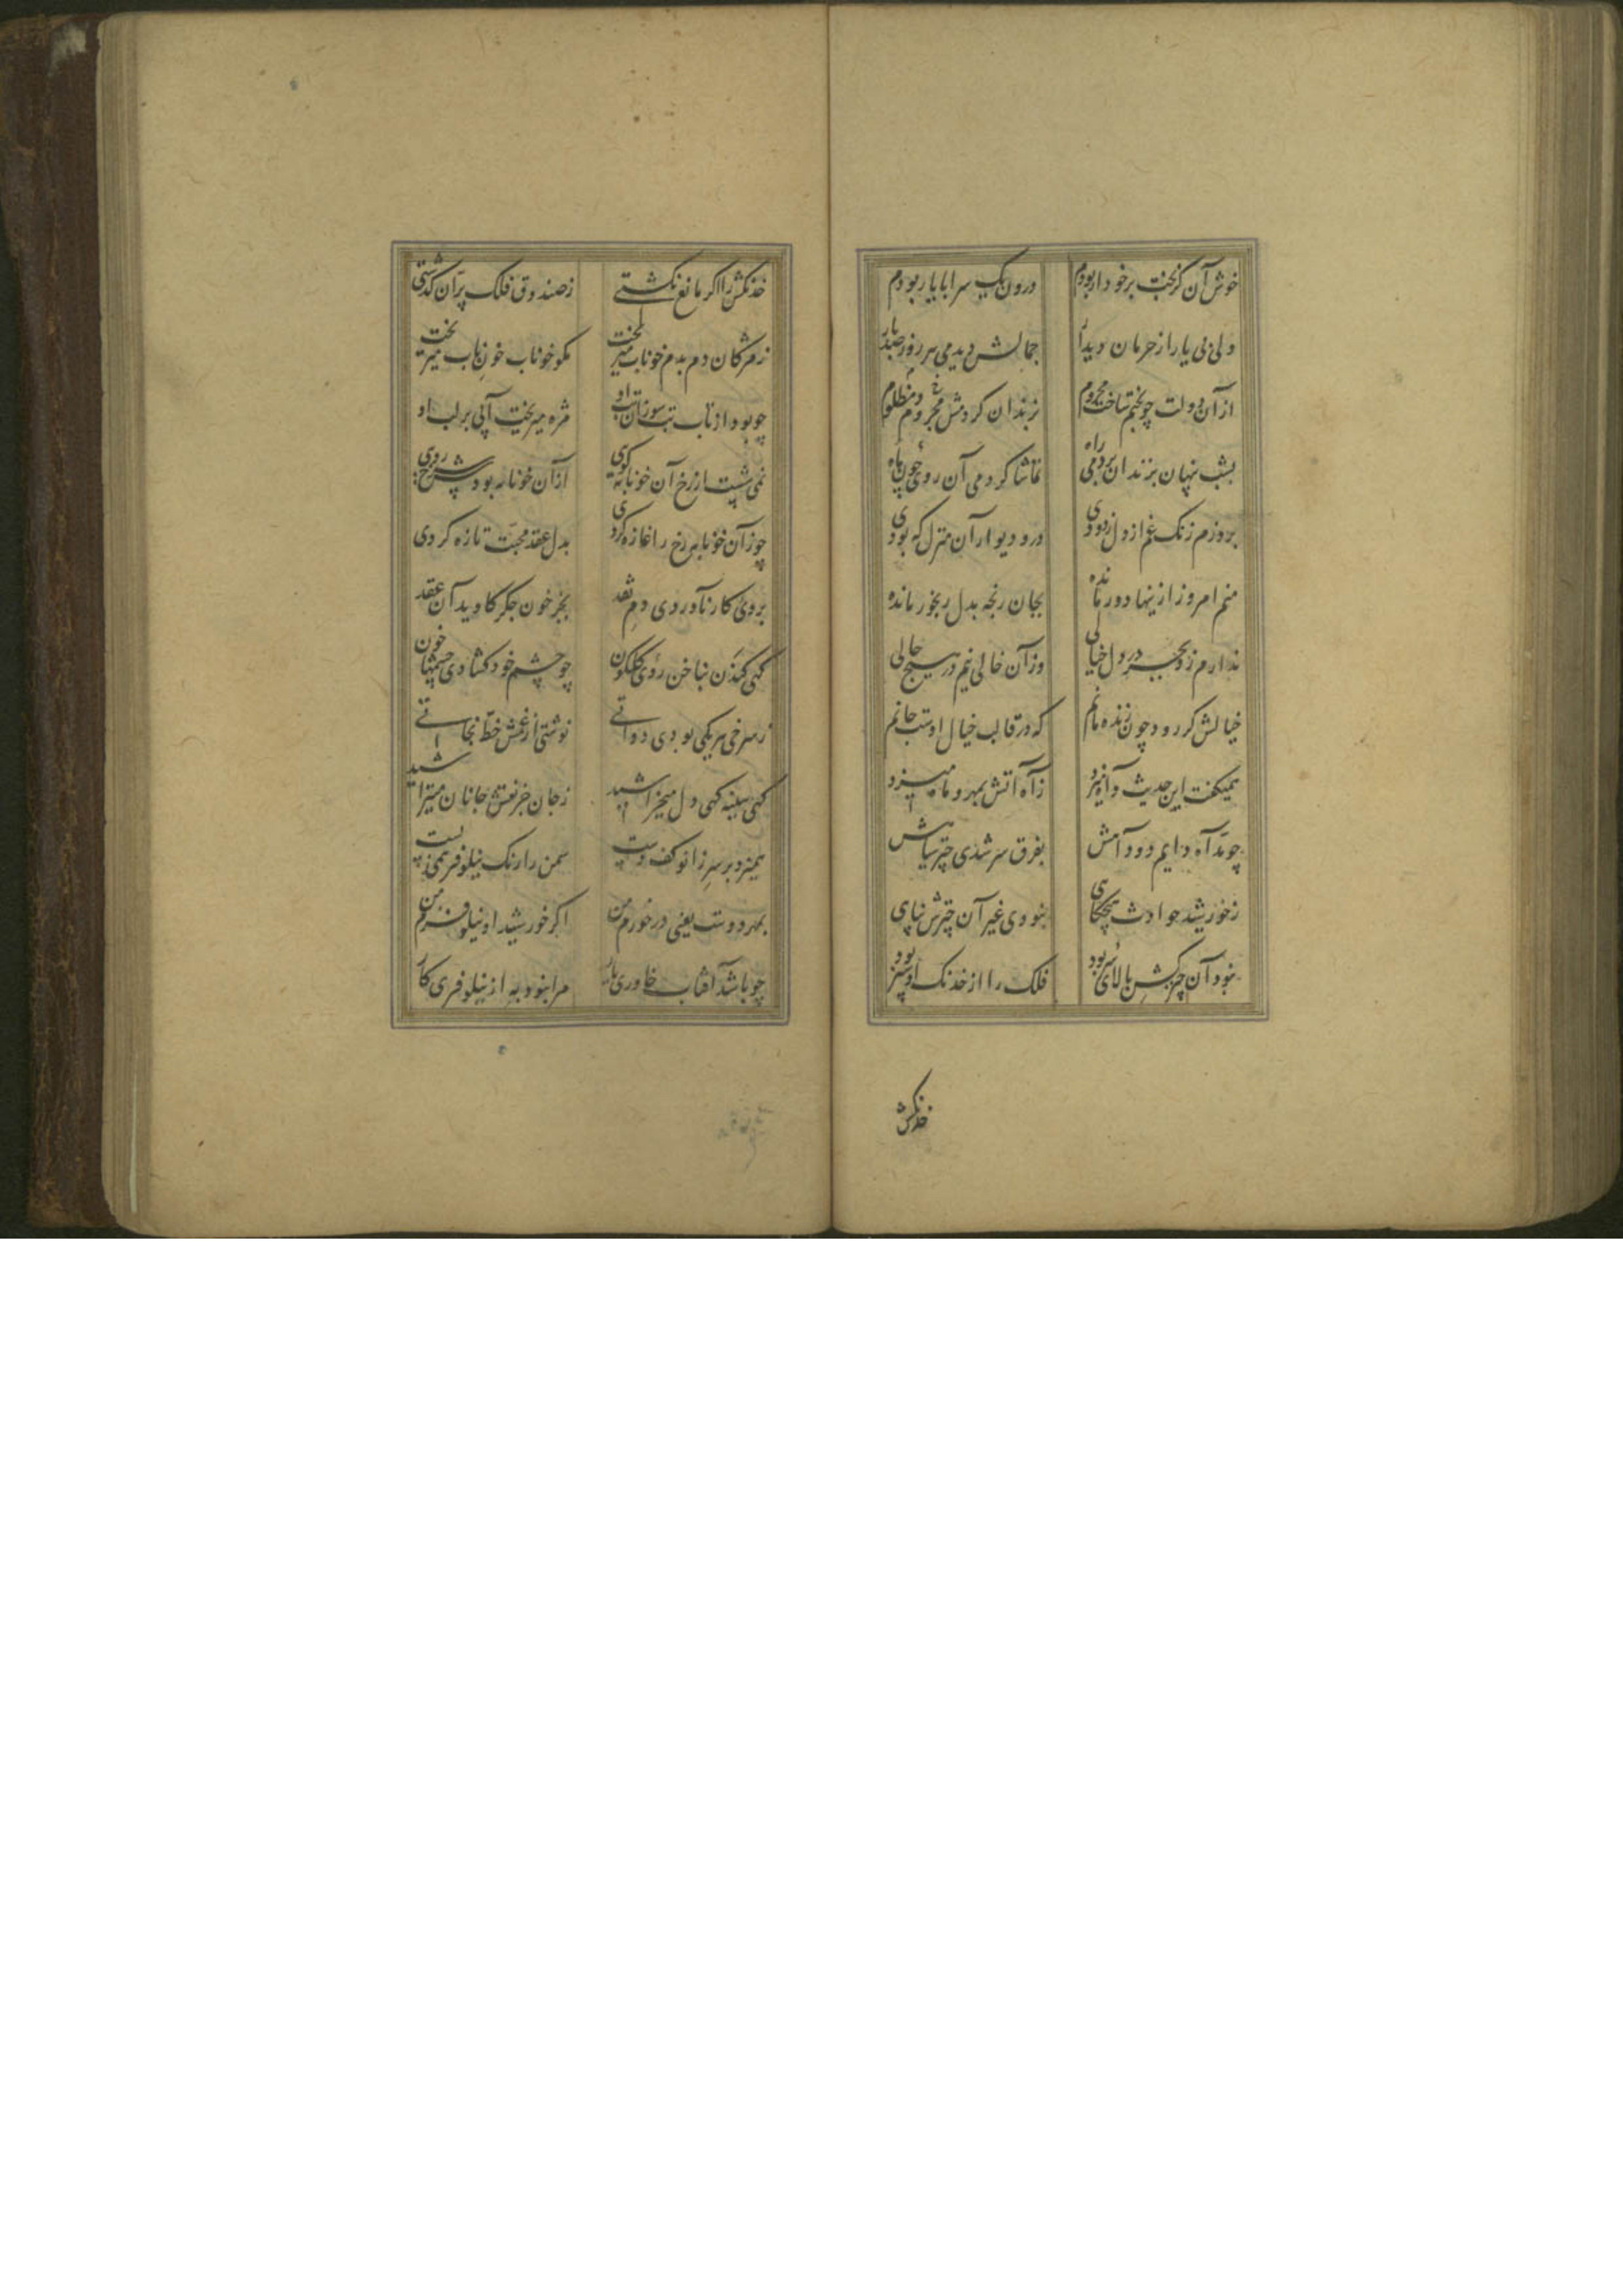 خوش آن کز بخت برخوردار بودم درون یک سرا با یار بودم
ولی بی یارا ز حرمان دیدار جمالش دیدمی هر روز صدبار
از آن دولت چو بختم ساخت محروم بزندان کردمش مجروم و مظلوم
بشب پنهان بزندان بردمی راه تماشا کردمی آن روی چون ماه
بروزم زنک غم از دل زدودی در و دیوار آن منزل که بودی
منم امروز ازینها دور مانده بجان رنجه بدل رنجور مانده
ندارم زو بجز در دل خیالی وز آن خالی نیم در هیچ حالی
خیالش کر رود چون زنده مانم که در قالب خیال اوست جانم
همیکفت این حدیث و آه میزد ز آه آتش بمهر و ماه میزد
چو بد آه دایم دود آهش بفرق سر شدی چتر سیاهش
ز خورشید حوادث هیچکاهی نبودی غیر آن چترش پناهی
نبود آن چتر کش بالای سر بود فلک را از خدنک او سپر بود
خدنکش
خدنکش را اکر مانع نکشتی ز صندوق فلک پرّان کذشتی
ز مژکان دم بدم خوناب میریخت مکو خوناب خون ناب میریخت
چو بود از تاب تب سوزان تب او مژه میریخت آبی بر لب او
نمی شست از رخ آن خونابه کوی از آن خونابه بودش سرخ روی
چو زآن خونابه رخ را غازه کردی بدل عقد محبّت تازه کردی
بروی کار ناوردی دم نقد بجز خون جکر کاوید آن عقد
کهی کندن بناخن روی کلکون چو چشم خود کشادی چشمهاء خون
ز سرخی هر یکی بودی دواتی نوشتی از غمش خطّ نجاتی
کهی سینه کهی دل میخراشید ز جان جز نقش جانان میتراشید
همیزد بر سر زانو کف دست سمن را رنک نیلوفر همی بست
بمهر دوست یعنی درخورم من اکر خورشید او نیلوفرم من
چو باشد آفتاب خاوری یار مرا نبود به از نیلوفری کار